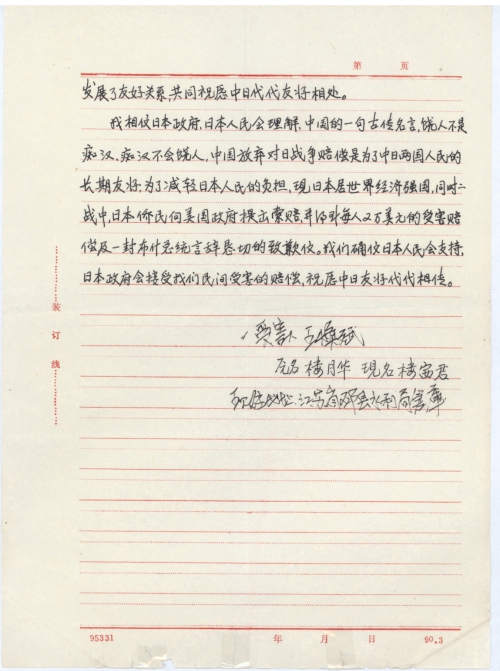 第 页
发展了友好关系,共同祝愿中日代代友好相处。
我相信日本政府,日本人民会理解,中国的一句古传名言,饶人不是
痴汉,痴汉不会饶人,中国放弃对日战争赔偿是为了中日两国人民的
长期友好,为了减轻日本人民的负担,现日本居世界经济强国,同时二
战中,日本侨民向美国政府提出索赔,并得到每人2万美元的受害赔
偿及一封布什总统言辞恳切的致歉信。我们确信日本人民会支持,
日本政府会接受我们民间受害的赔偿,祝愿中日友好代代相传。
受害人 王
名楼月华 现名楼宙君
现住地址:江苏省邳县水利局宿舍
装订线
95331 年 月 日 90.3